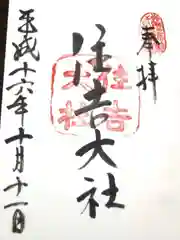 奉拝
住吉大社
平成十六年十月十一日
住吉大社